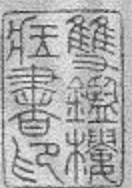 雙鑑樓
藏書印